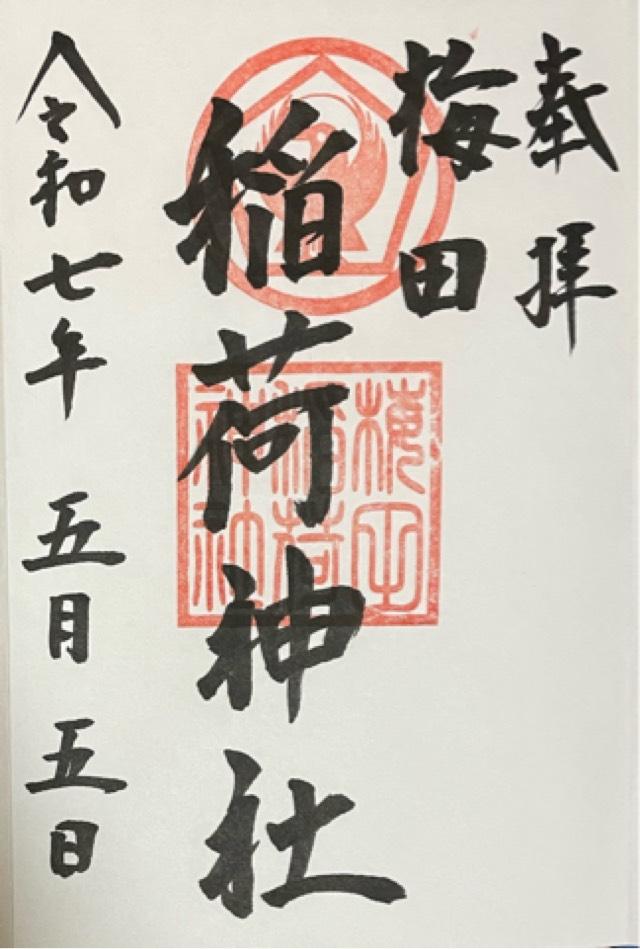 奉拝
梅田
稲荷神社
令和七年 五月 五日
梅田
稲荷
神社